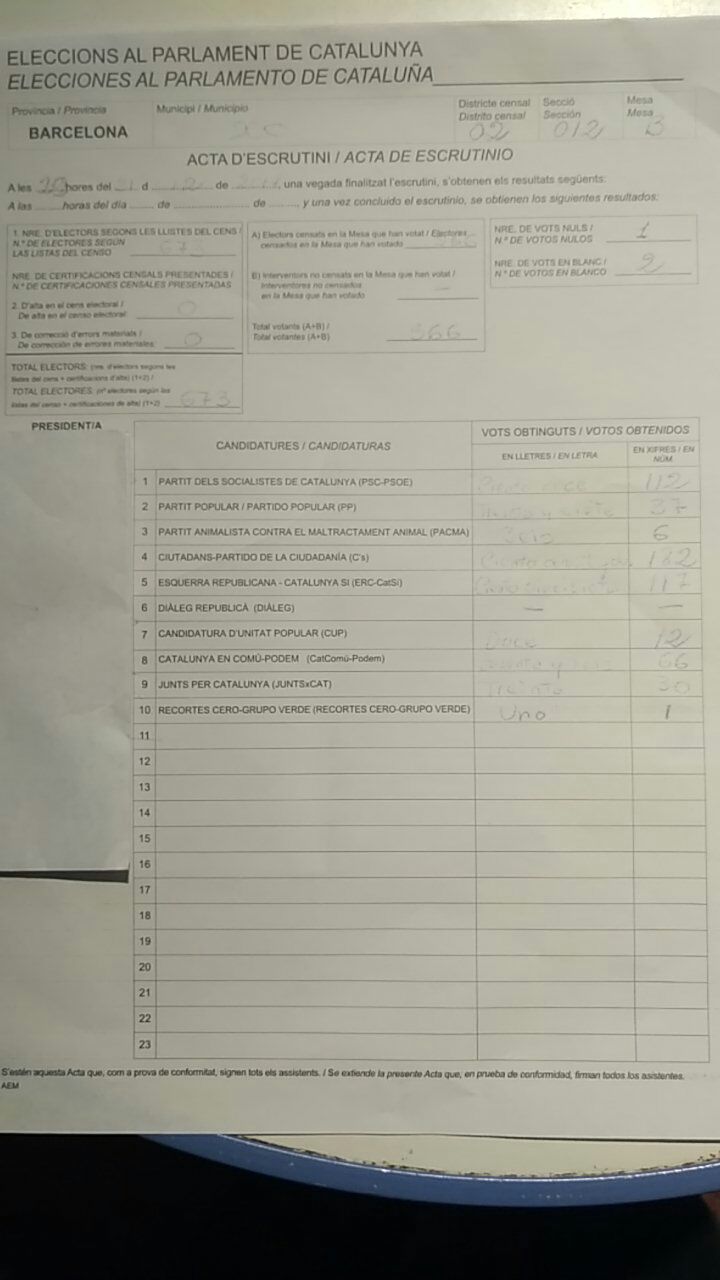 ELECCIONS AL PARLAMENT DE CATALUNYA
ELECCIONES AL PARLAMENTO DE CATALUÑA
Provincia / Provincia Municipi / Municipio Districte censal Secció Mesa
Distrito censal Sección Mesa
BARCELONA 02 012 B
ACTA D'ESCRUTINI / ACTA DE ESCRUTINIO
A les 20 hores del d de , una vegada finalitzat l'escrutini, s'obtenen els resultats següents:
A las horas del día de de , y una vez concluido el escrutinio, se obtienen los siguientes resultados:
1. NRE. D'ELECTORS SEGONS LES LLISTES DEL CENS /
N.º DE ELECTORES SEGÚN
LAS LISTAS DEL CENSO 673
NRE. DE CERTIFICACIONS CENSALS PRESENTADES /
N.º DE CERTIFICACIONES CENSALES PRESENTADAS
2. D'alta en el cens electoral /
De alta en el censo electoral: 0
3. De correcció d'errors materials /
De corrección de errores materiales: 0
TOTAL ELECTORS: (nre. d'electors segons les
llistes del cens + certificacions d'alta) (1+2) /
TOTAL ELECTORES: (nº electores según las
listas del censo + certificaciones de alta) (1+2) 673
A) Electors censats en la Mesa que han votat / Electores
censados en la Mesa que han votado
B) Interventors no censats en la Mesa que han votat /
Interventores no censados
en la Mesa que han votado –
Total votants (A+B) /
Total votantes (A+B) 566
NRE. DE VOTS NULS /
N.º DE VOTOS NULOS 1
NRE. DE VOTS EN BLANC /
N.º DE VOTOS EN BLANCO 2
PRESIDENT/A
CANDIDATURES / CANDIDATURAS VOTS OBTINGUTS / VOTOS OBTENIDOS
EN LLETRES / EN LETRA EN XIFRES / EN NÚM.
1 PARTIT DELS SOCIALISTES DE CATALUNYA (PSC-PSOE) 112
2 PARTIT POPULAR / PARTIDO POPULAR (PP) 37
3 PARTIT ANIMALISTA CONTRA EL MALTRACTAMENT ANIMAL (PACMA) Seis 6
4 CIUTADANS-PARTIDO DE LA CIUDADANÍA (C's) 182
5 ESQUERRA REPUBLICANA - CATALUNYA SI (ERC-CatSí) 117
6 DIÀLEG REPUBLICÀ (DIÀLEG) — —
7 CANDIDATURA D'UNITAT POPULAR (CUP) Doce 12
8 CATALUNYA EN COMÚ-PODEM (CatComú-Podem) 66
9 JUNTS PER CATALUNYA (JUNTSxCAT) Treinta 30
10 RECORTES CERO-GRUPO VERDE (RECORTES CERO-GRUPO VERDE) Uno 1
11
12
13
14
15
16
17
18
19
20
21
22
23
S'estén aquesta Acta que, com a prova de conformitat, signen tots els assistents. / Se extiende la presente Acta que, en prueba de conformidad, firman todos los asistentes.
AEM